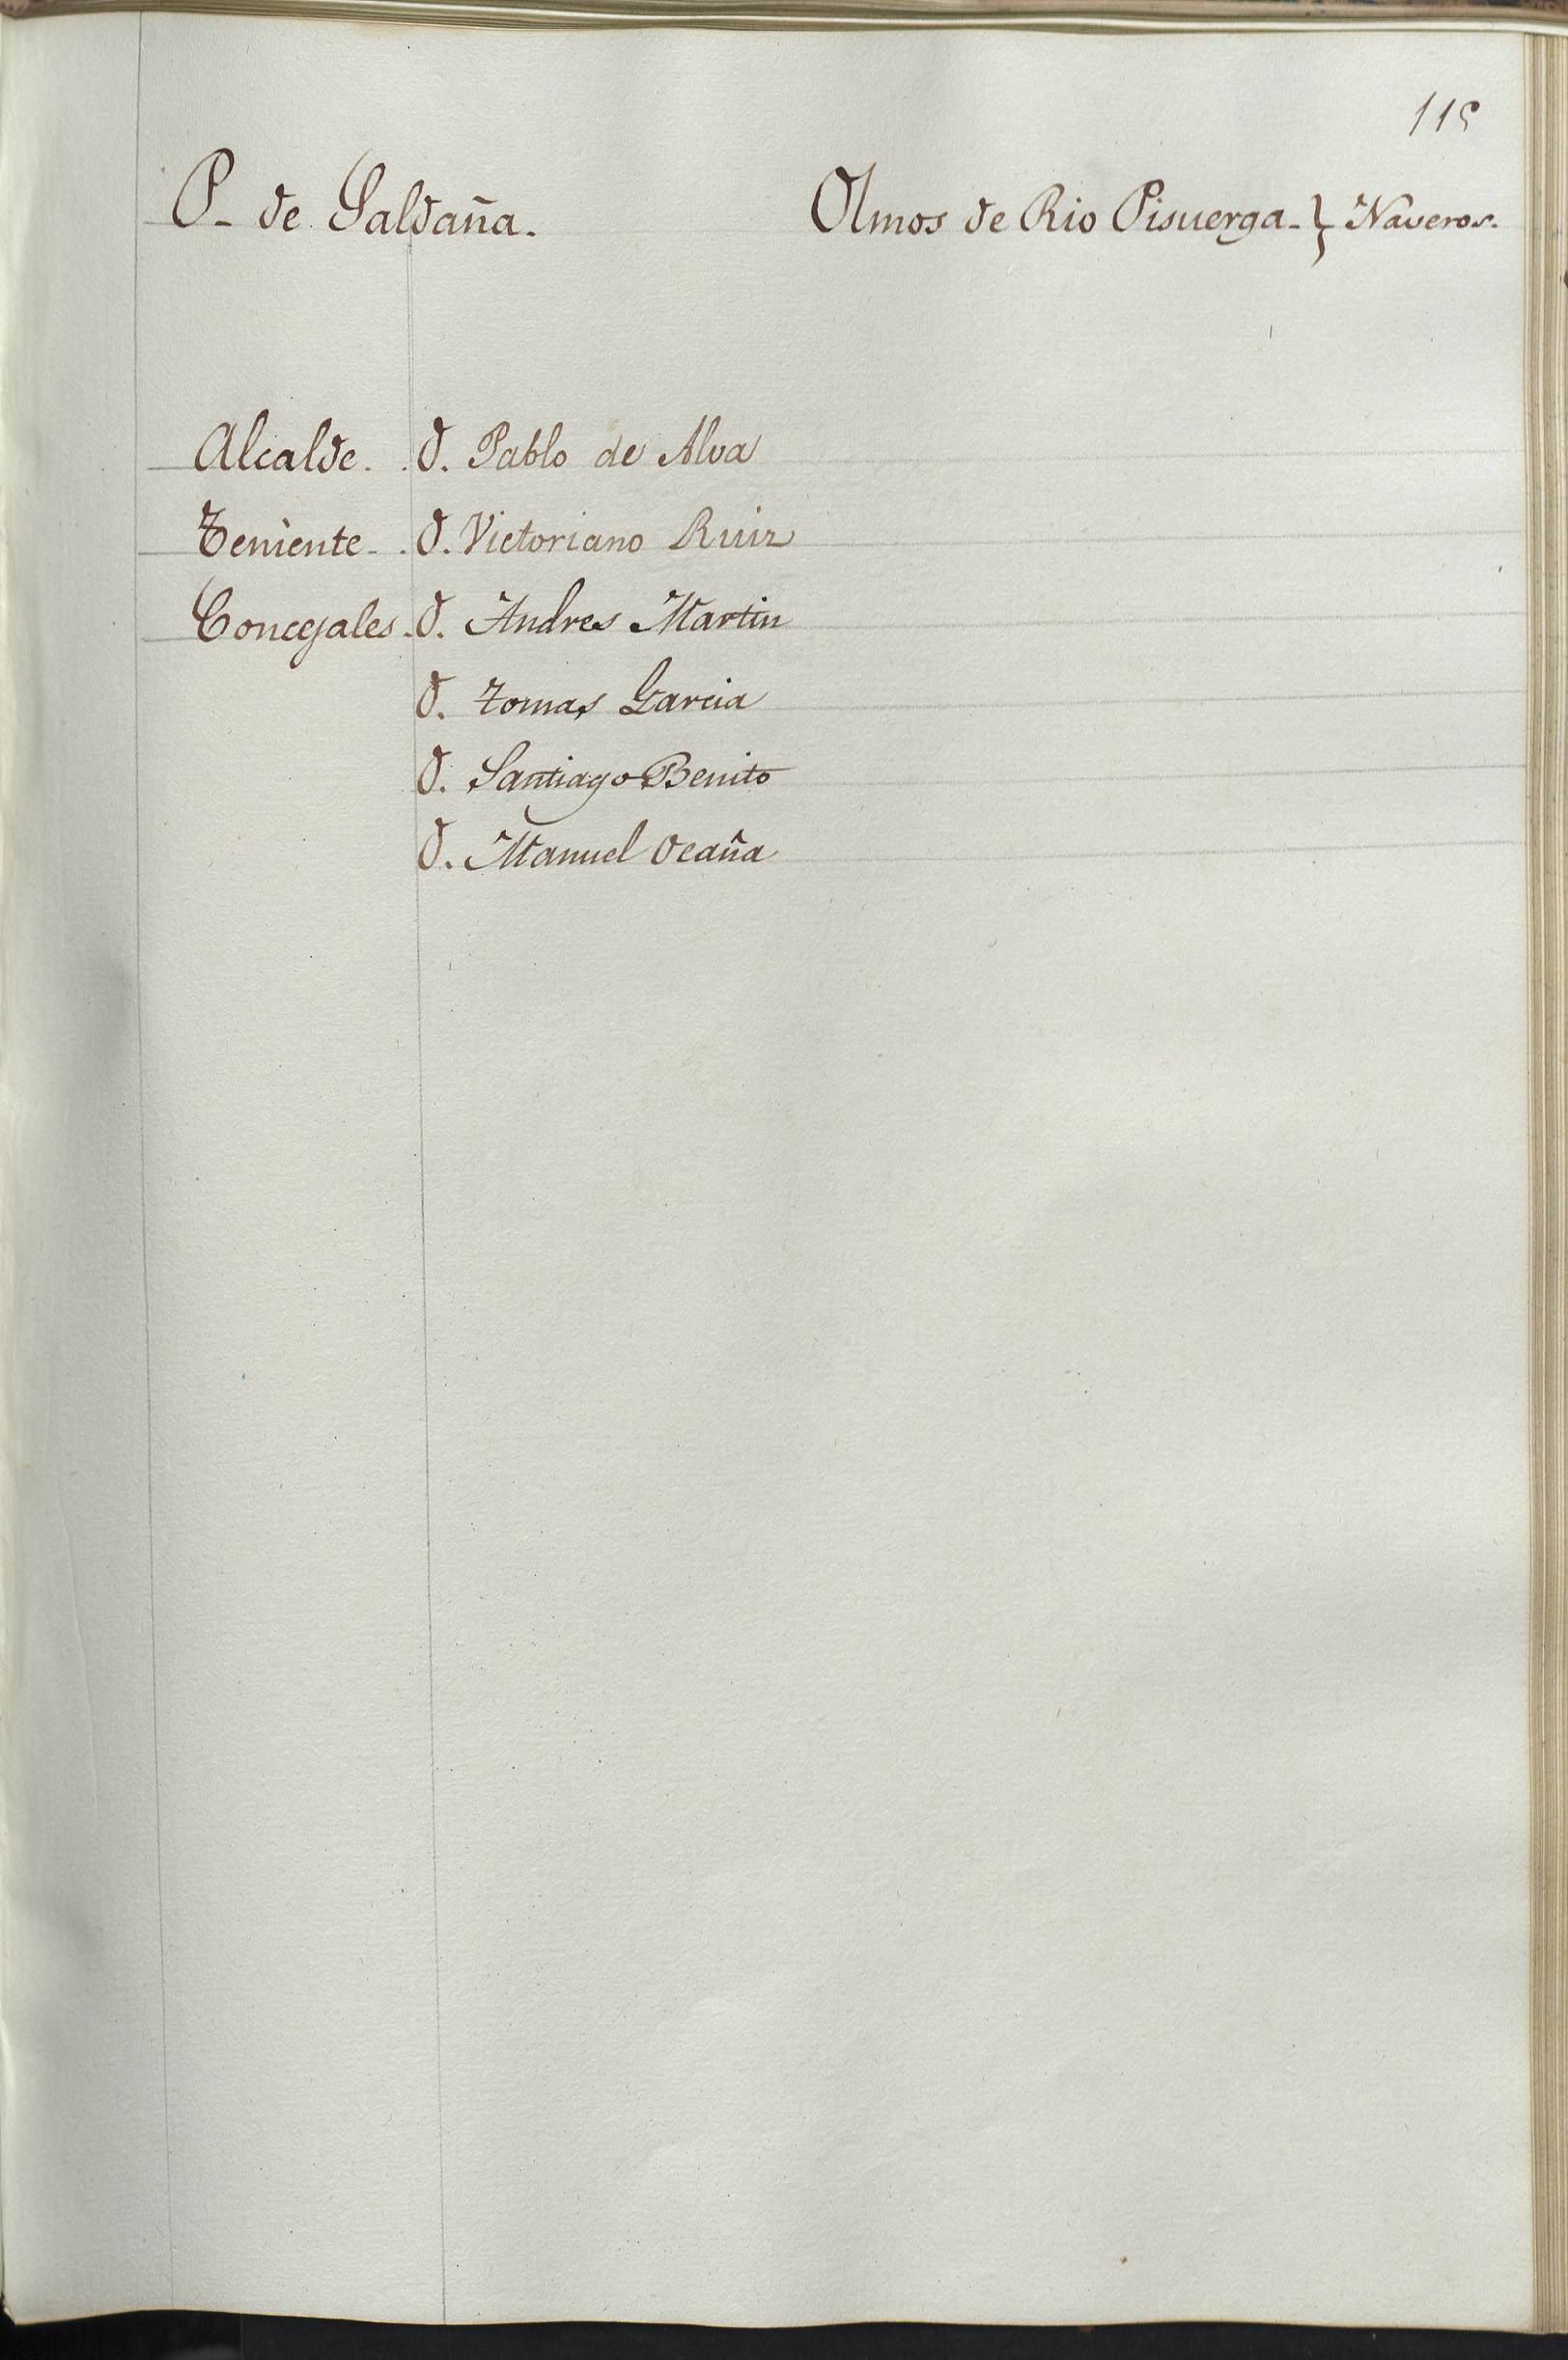 115
P. de Saldaña. Olmos de Rio Pisuerga. } Naveros.
Alcalde. . D. Pablo de Alva
Teniente. . D. Victoriano Ruiz
Concejales. D. Andres Martin
D. Tomas Garcia
D. Santiago Benito
D. Manuel Ocaña